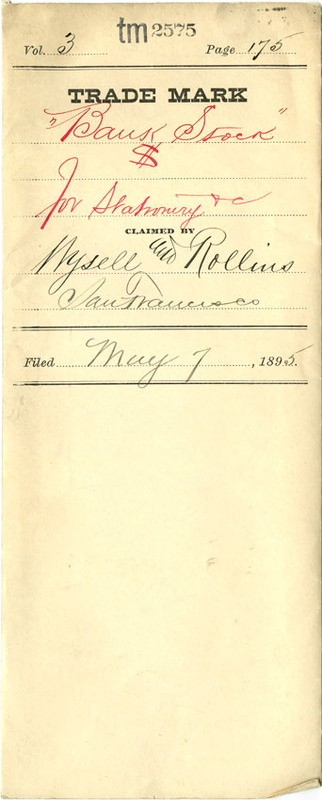 tm 2575
Vol. 3 Page 175
TRADE MARK
"Bank Stock"
$
for Stationery & c
CLAIMED BY
Wysell and Rollins
San Francisco
Filed May 7, 1895.